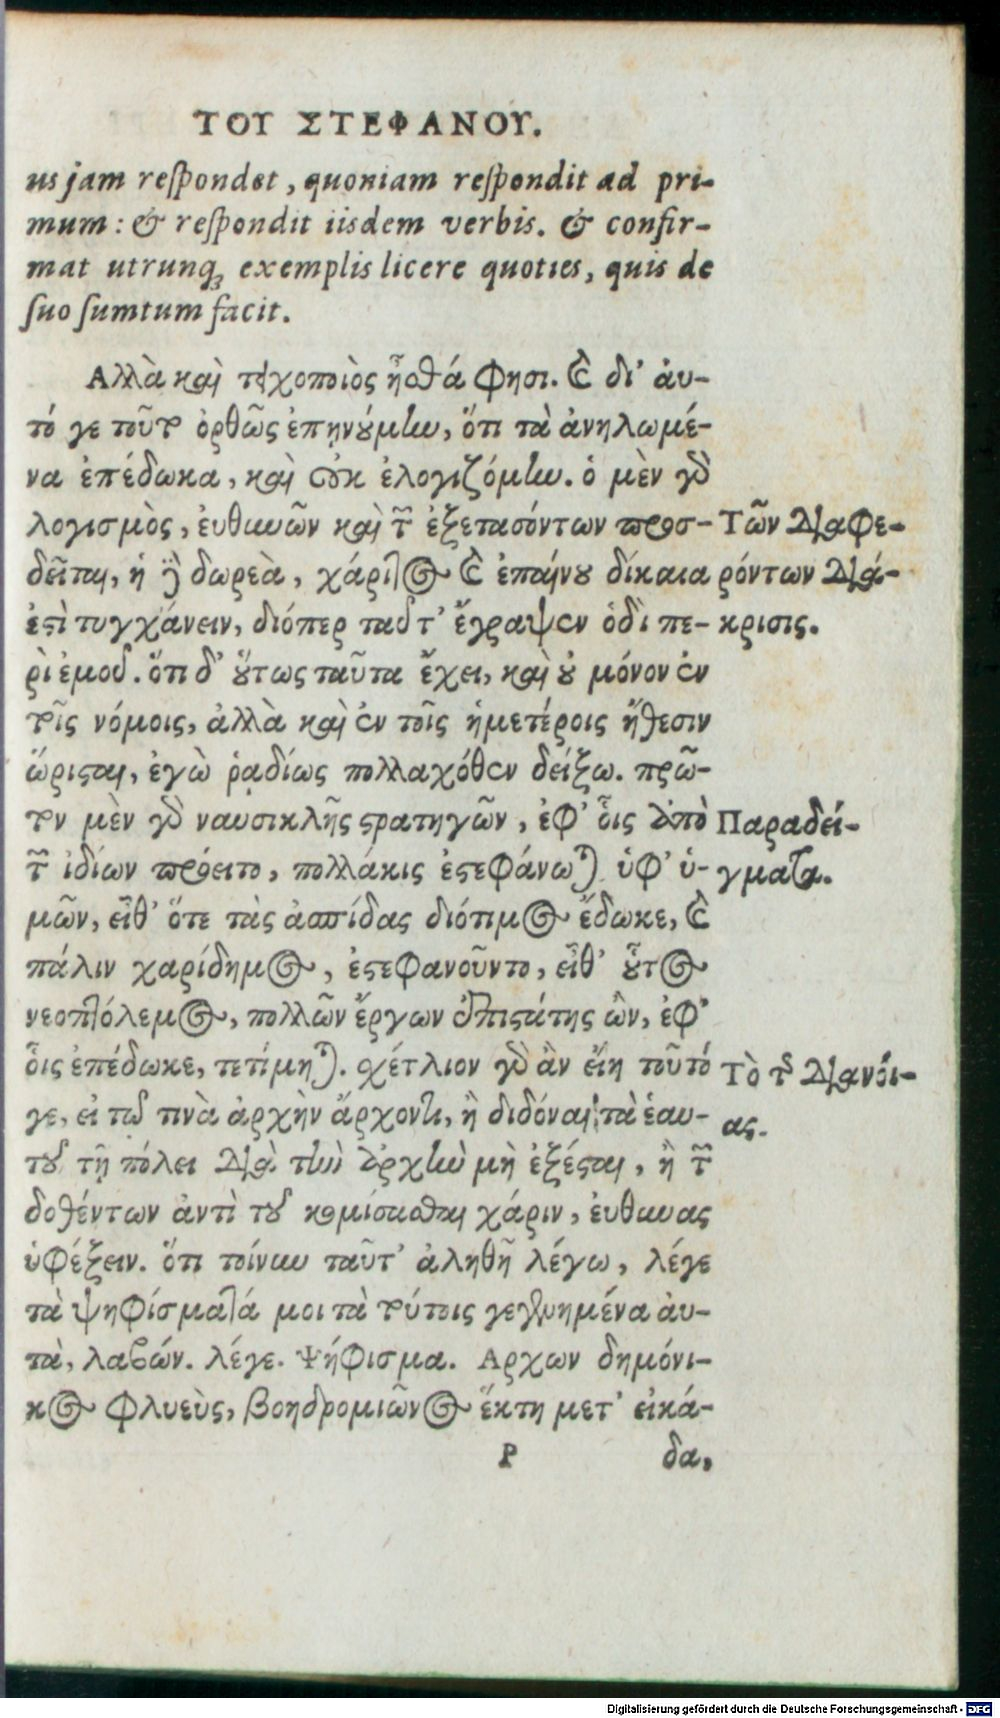 ΤΟΥ ΣΤΕΦΑΝΟΥ.
us jam respondet, quoniam respondit ad pri-
mum: & respondit iisdem verbis. & confir-
mat utrunq; exemplis licere quoties, quis de
suo sumtum facit.
Αλλὰ καὶ τειχοποιὸς ἦσθά φησι. καὶ δι' ἀυ-
τό γε τοῦτο ὀρθῶς ἐπῃνούμην, ὅτι τὰ ἀνηλωμέ-
να ἐπέδωκα, καὶ οὐκ ἐλογιζόμην. ὁ μὲν γὸ
λογισμὸς, ἐυθυνῶν καὶ τῶν ἐξετασόντων προσ-
δεῖται, ἡ δὲ δωρεὰ, χάριτος καὶ ἐπαίνου δίκαια
ἐστὶ τυγχάνειν, διόπερ ταῦτ' ἔγραψεν ὁδὶ πε-
ρὶ ἐμοῦ. ὅτι δ' οὕτως ταῦτα ἔχει, καὶ οὐ μόνον ἐν
τοῖς νόμοις, ἀλλὰ καὶ ἐν τοῖς ἡμετέροις ἤθεσιν
ὥρισται, ἐγὼ ῥᾳδίως πολλαχόθεν δείξω. πρῶ-
τον μὲν γὸ ναυσικλῆς στρατηγῶν, ἐφ' οἷς ἀπὸ
τῶν ἰδίων πρόειτο, πολλάκις ἐστεφάνωται ὑφ' ὑ-
μῶν, εἶθ' ὅτε τὰς ἀσπίδας διότιμος ἔδωκε, καὶ
πάλιν χαρίδημος, ἐστεφανοῦντο, εἶθ' οὗτος
νεοπτόλεμος, πολλῶν ἔργων ἐπιστάτης ὢν, ἐφ'
οἷς ἐπέδωκε, τετίμηται. σχέτλιον γὸ ἂν εἴη τοῦτό
γε, εἰ τῷ τινὰ ἀρχὴν ἄρχοντι, ἢ διδόναι τὰ ἑαυ-
τοῦ τῇ πόλει διὰ τὴν ἀρχὴν μὴ ἐξέσται, ἢ τῶν
δοθέντων ἀντὶ τοῦ κομίσασθαι χάριν, ἐυθυνας
ὑφέξειν. ὅτι τοίνυν ταῦτ' ἀληθῆ λέγω, λέγε
τὰ ψηφίσματά μοι τὰ τούτοις γεγενημένα ἀυ-
τὰ, λαβών. λέγε. Ψήφισμα. Αρχων δημόνι-
κος φλυεὺς, βοηδρομιῶνος ἕκτῃ μετ' εἰκά-
P δα,
Τῶν διαφε-
ρόντων διά-
κρισις.
Παραδεί-
γματα.
Τὸ τῆς διανοί-
ας.
Digitalisierung gefördert durch die Deutsche Forschungsgemeinschaft - DFG